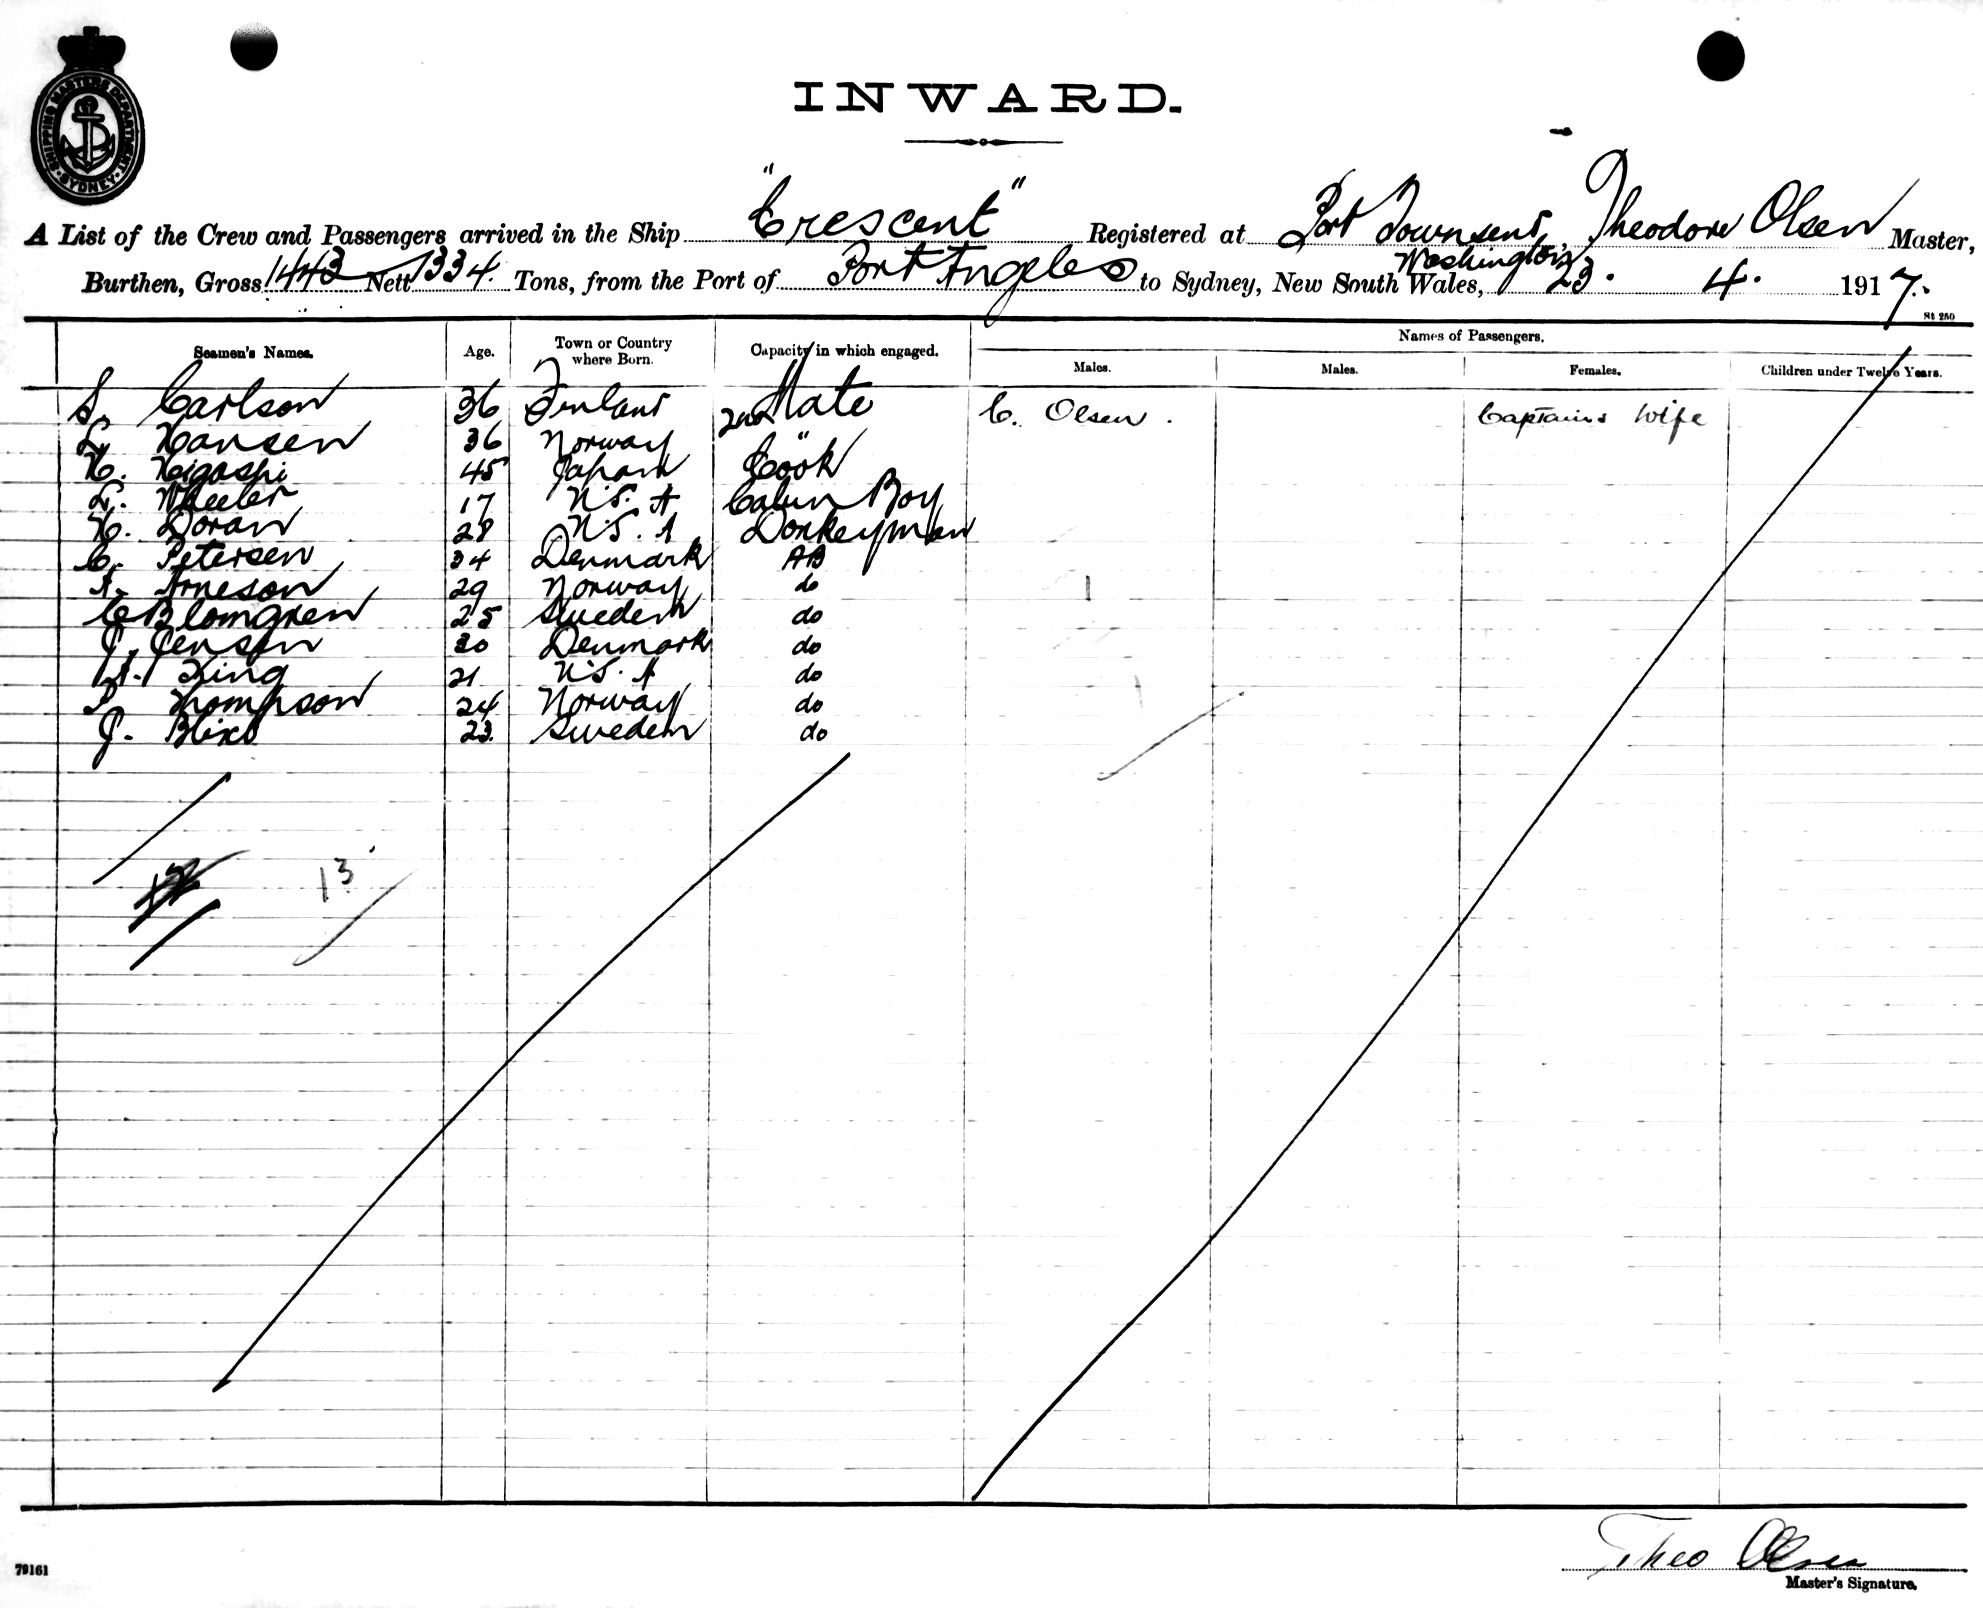 SHIPPING MASTERS DEPARTMENT
SYDNEY
INWARD.
A List of the Crew and Passengers arrived in the Ship "Crescent" Registered at Port Townsend, Theodore Olsen Master,
Washington
Burthen, Gross 1443 Nett 1334 Tons, from the Port of Port Angeles to Sydney, New South Wales, 23. 4. 1917.
St 250
Seamen's Names. Age. Town or Country where Born. Capacity in which engaged. Names of Passengers.
Males. Males. Females. Children under Twelve Years.
S. Carlson 36 Finland Mate C. Olsen. Captains Wife
L. Hansen 36 Norway 2nd "
H. Higashi 45 Japan Cook
L. Wheeler 17 U.S.A Cabin Boy
H. Doran 28 U.S.A Donkeyman
C. Petersen 34 Denmark AB
A. Arneson 29 Norway do
C Blomgren 25 Sweden do
J. Jensen 30 Denmark do
H. King 21 U.S.A do
Thompson 24 Norway do
J. Blixt 23 Sweden do
12
13
Theo Olsen
79161
Master's Signature.